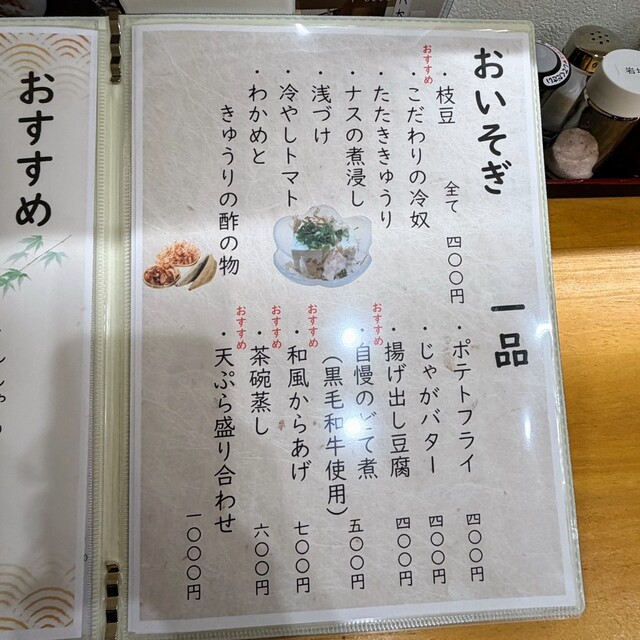 おいそぎ
一品
・枝豆
全て 四〇〇円
おすすめ
・こだわりの冷奴
・たたききゅうり
・ナスの煮浸し
・浅づけ
・冷やしトマト
・わかめと
きゅうりの酢の物
・ポテトフライ 四〇〇円
・じゃがバター 四〇〇円
・揚げ出し豆腐 四〇〇円
おすすめ
・自慢のどて煮 五〇〇円
（黒毛和牛使用）
おすすめ
・和風からあげ 七〇〇円
おすすめ
・茶碗蒸し 六〇〇円
おすすめ
・天ぷら盛り合わせ 一〇〇〇円
おすすめ